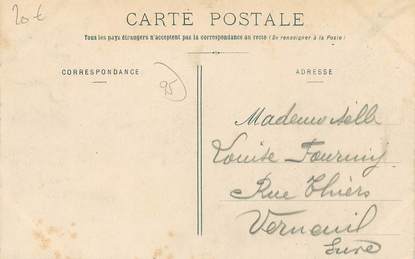 20 €
CARTE POSTALE
Tous les pays étrangers n'acceptent pas la correspondance au recto (Se renseigner à la Poste)
CORRESPONDANCE
ADRESSE
95
Mademoiselle
Louise Fourniy
Rue Thiers
Verneuil
Eure